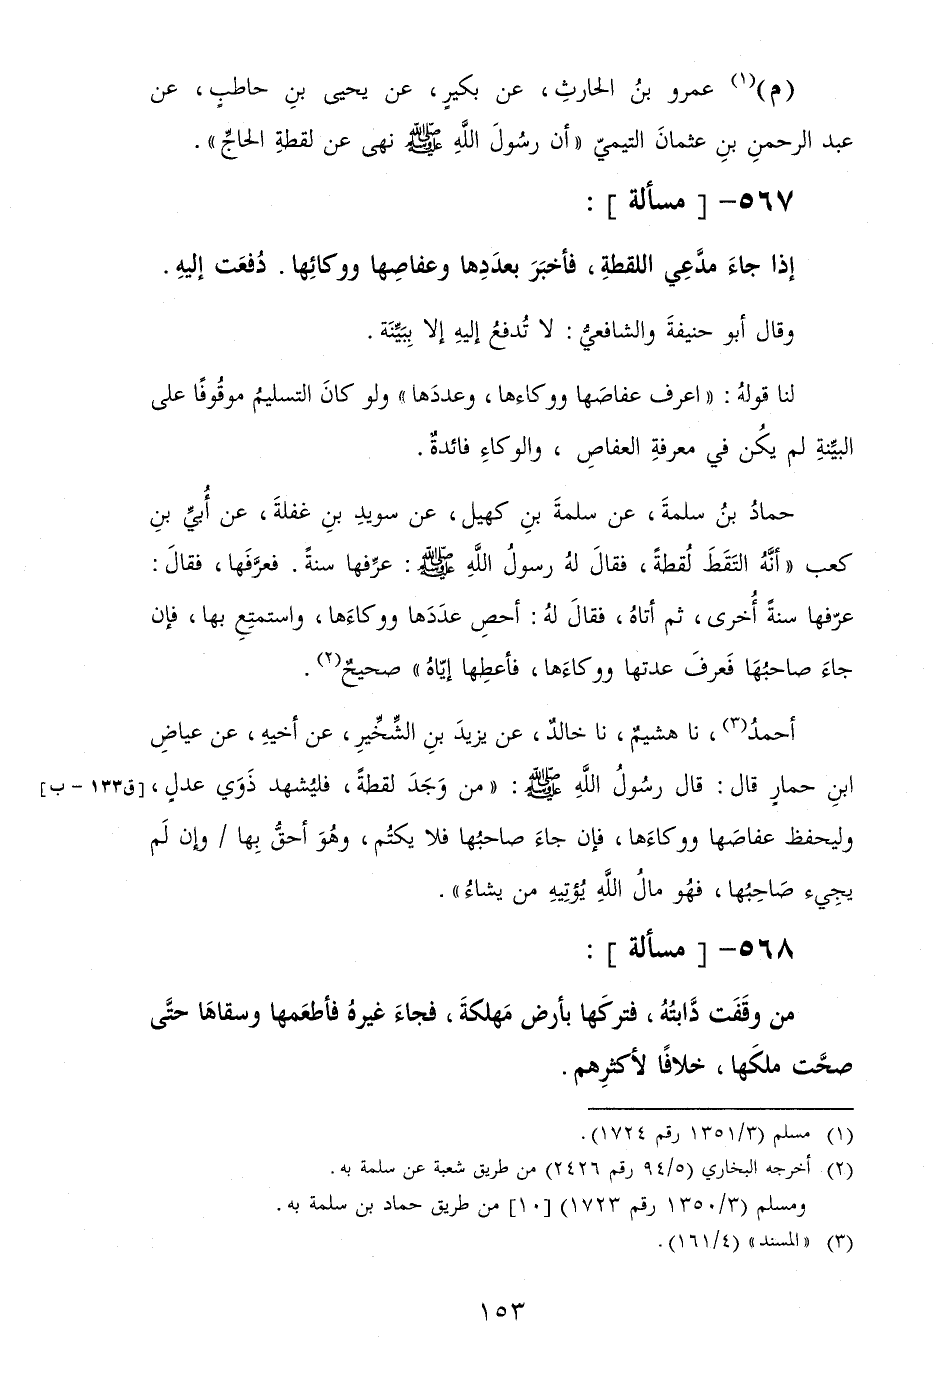 (م)(١) عمرو بنُ الحارثِ، عن بكيرٍ، عن يحيى بنِ حاطبٍ، عن
عبد الرحمنِ بنِ عثمانَ التيميّ «أن رسُولَ اللَّهِ ﷺ نهى عن لقطةِ الحاجِّ».
٥٦٧- [ مسألة ] :
إذا جاءَ مدَّعِي اللقطةِ، فأخبَرَ بعدَدِها وعفاصِها ووكائِها. دُفعَت إليهِ.
وقال أبو حنيفةَ والشافعيُّ: لا تُدفعُ إليهِ إلا بِبَيِّنَة.
لنا قولهُ: «اعرف عفاصَها ووكاءها، وعددَها» ولو كانَ التسليمُ موقُوفًا على
البيِّنةِ لم يكُن في معرفةِ العفاصِ ، والوكاءِ فائدةٌ.
حمادُ بنُ سلمةَ، عن سلمةَ بنِ كهيل، عن سويدِ بنِ غفلةَ، عن أُبيِّ بنِ
كعب «أنَّهُ التَقَطَ لُقطةً، فقالَ لهُ رسولُ اللَّهِ ﷺ: عرِّفها سنةً. فعرَّفَها، فقالَ:
عرّفها سنةً أُخرى، ثم أتاهُ، فقالَ لهُ: أحصِ عدَدَها ووكاءَها، واستمتِعِ بها، فإن
جاءَ صاحبُهَا فَعرفَ عدتها ووكاءَها، فأعطِها إيّاهُ» صحيحٌ(٢).
أحمدُ(٣)، نا هشيمٌ، نا خالدٌ، عن يزيدَ بنِ الشِّخِّيرِ، عن أخيهِ، عن عياضِ
ابنِ حمارٍ قال: قال رسُولُ اللَّهِ ﷺ: «من وَجَدَ لقطةً، فليُشهد ذَوَي عدلٍ، [ق١٣٣ - ب]
وليحفظ عفاصَها ووكاءَها، فإن جاءَ صاحبُها فلا يكتُم، وهُوَ أحقُّ بِها / وإن لَم
يجِيء صَاحِبُها، فهُو مالُ اللَّهِ يُؤتِيهِ من يشاءُ».
٥٦٨- [ مسألة ] :
من وقَفَت دَّابتُهُ، فتركَها بأرض مَهلكةَ، فجاءَ غيرهُ فأطعَمها وسقاهَا حتَّى
صحَّت ملكَها، خلافًا لأكثرِهم.
(١) مسلم (١٣٥١/٣ رقم ١٧٢٤).
(٢) أخرجه البخاري (٩٤/٥ رقم ٢٤٢٦) من طريق شعبة عن سلمة به.
ومسلم (١٣٥٠/٣ رقم ١٧٢٣) [١٠] من طريق حماد بن سلمة به.
(٣) «المسند» (١٦١/٤).
١٥٣